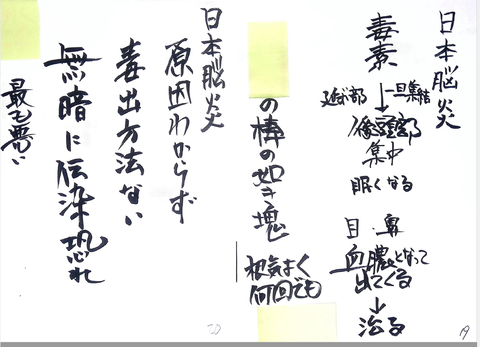 日本脳炎
毒素
一旦集結
延髄部
↓
後頭部
集中
眠くなる
目・鼻
血膿となって
出てくる
↓
治る
の棒の如き塊
根気よく
何回でも
日本脳炎
原因わからず
毒出方法ない
無暗に伝染恐れ
最も悪い